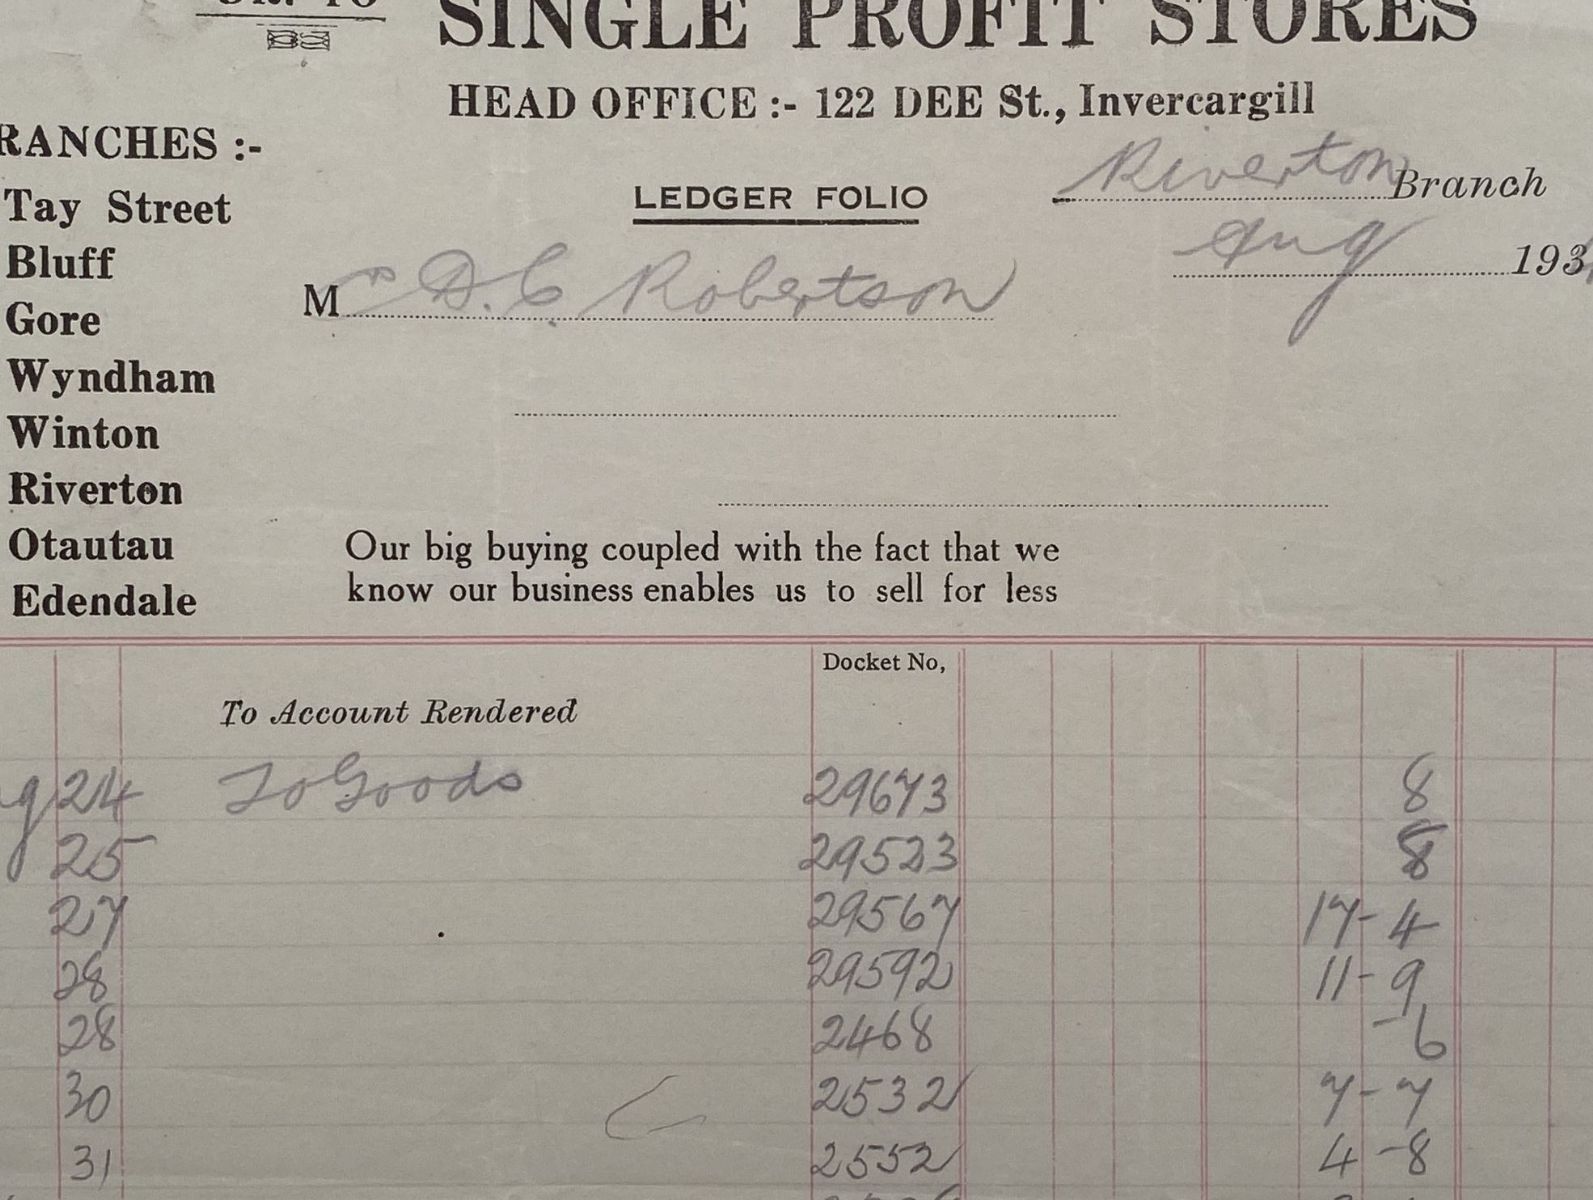 SINGLE PROFIT STORES
HEAD OFFICE :- 122 DEE St., Invercargill
RANCHES :-
Riverton Branch
Tay Street
LEDGER FOLIO
Aug 193
Bluff
Mr D. C. Robertson
Gore
Wyndham
Winton
Riverton
Otautau
Edendale
Our big buying coupled with the fact that we
know our business enables us to sell for less
Docket No,
To Account Rendered
g 24 To Goods 29673 8
25 29523 8
27 29567 17-4
28 29592 11-9
28 2468 -6
30 2532 7-7
31 2552 4-8